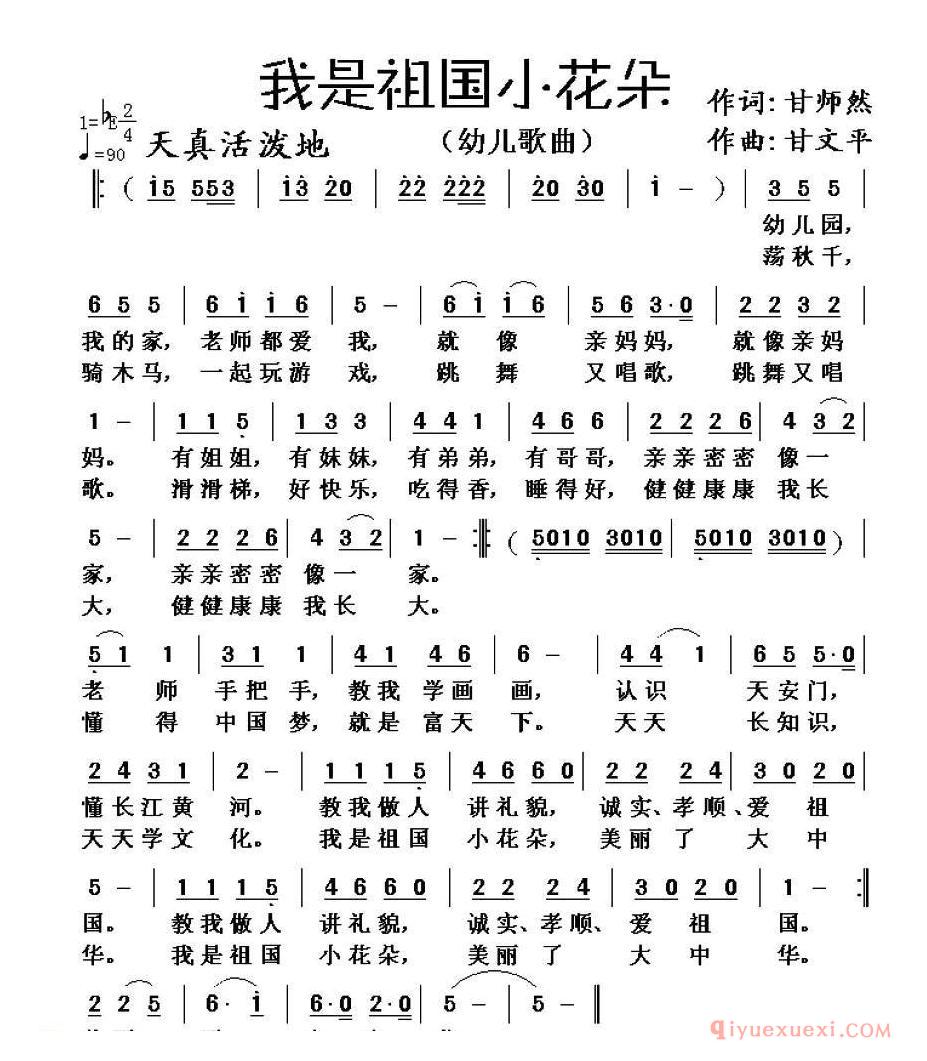 我是祖国小花朵
作词:甘师然
1=♭E 2/4
♩=90 天真活泼地
（幼儿歌曲）
作曲:甘文平
‖: ( i5 553 | i3 20 | 22 222 | 20 30 | i - ) | 3 5 5 |
幼儿园，
荡秋千，
6 5 5 | 6 i i 6 | 5 - | 6 i i 6 | 5 6 3·0 | 2 2 3 2 |
我的家，老师都爱 我， 就 像 亲妈妈， 就像亲妈
骑木马，一起玩游 戏， 跳 舞 又唱歌， 跳舞又唱
1 - | 1 1 5 | 1 3 3 | 4 4 1 | 4 6 6 | 2 2 2 6 | 4 3 2 |
妈。 有姐姐， 有妹妹， 有弟弟， 有哥哥， 亲亲密密 像一
歌。 滑滑梯， 好快乐， 吃得香， 睡得好， 健健康康 我长
5 - | 2 2 2 6 | 4 3 2 | 1 - :‖: ( 5010 3010 | 5010 3010 ) |
家， 亲亲密密 像一 家。
大， 健健康康 我长 大。
5 1 1 | 3 1 1 | 4 1 4 6 | 6 - | 4 4 1 | 6 5 5·0 |
老 师 手把手， 教我学画 画， 认识 天安门，
懂 得 中国梦， 就是富天 下。 天天 长知识，
2 4 3 1 | 2 - | 1 1 1 5 | 4 6 6 0 | 2 2 2 4 | 3 0 2 0 |
懂长江黄 河。 教我做人 讲礼貌， 诚实、孝顺、爱 祖
天天学文 化。 我是祖国 小花朵， 美丽 了 大 中
5 - | 1 1 1 5 | 4 6 6 0 | 2 2 2 4 | 3 0 2 0 | 1 - :‖
国。 教我做人 讲礼貌， 诚实、孝顺、 爱 祖 国。
华。 我是祖国 小花朵， 美丽 了 大 中 华。
2 2 5 | 6· i | 6·0 2·0 | 5 - | 5 - ‖
qiyuexuexi.COM